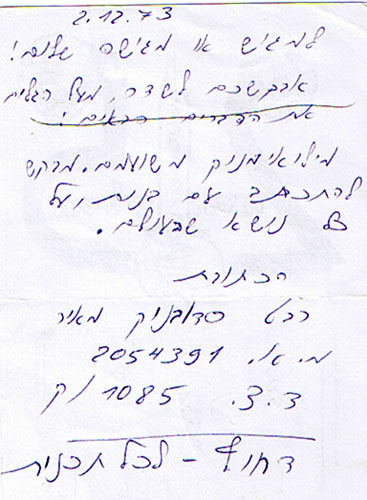 2.12.73
למגיש או מגישה שלום!
אבקשכם לשדר, מעל הגלים
את הדברים הבאים!
מילואימניק משועמם. מבקש
להתכתב עם בנות, על
כל נושא שבעולם.
הכתובת
רב״ט סדובניק מאיר
מ.א. 2054391
ד.צ. 1085 /ק
דחוף - לכל תכנית